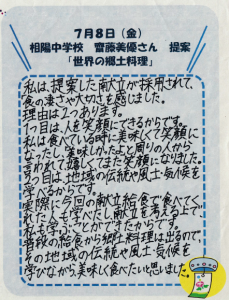 7月8日（金）
相陽中学校　齋藤美優さん　提案
「世界の郷土料理」
私は、提案した献立が採用されて、
食の楽しさや大切さを感じました。
理由は2つあります。
1つ目は、人を笑顔にできるからです。
私は食べている時に美味しくて笑顔に
なったし「美味しかったよ」と周りの人から
言われて嬉しくてまた笑顔になりました。
2つ目は、地域の伝統や風土・気候を
学べるからです。
実際に今回の献立給食で食べてく
れた人も学べたし、献立を考える上で、
私も学ぶことができたからです。
普段の給食から郷土料理は出るので
その地域の伝統や風土・気候を
学びながら、美味しく食べたいと思いました。